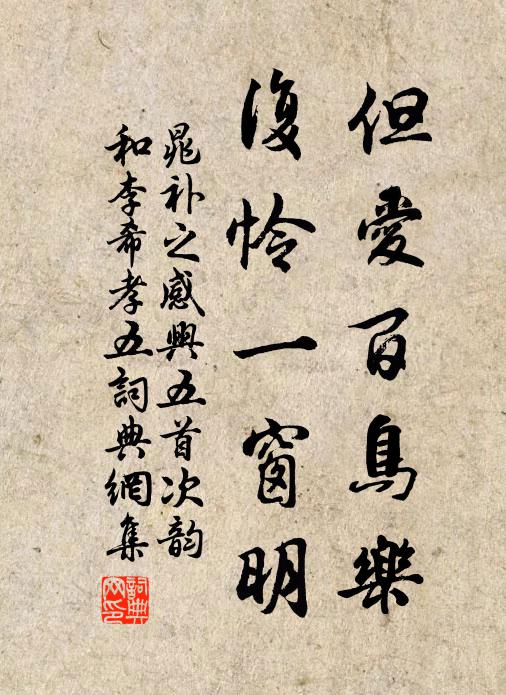 但愛百鳥樂
復怜一窗明
晁补之感興五首次韵
和李希孝五詞典網集
詞典
网印